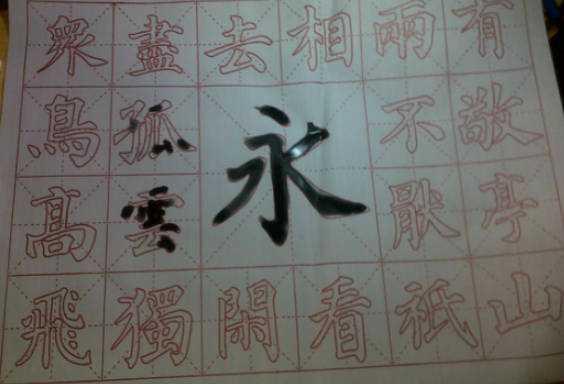 衆鳥髙飛
盡孤雲獨
去閑
永
相看
兩不猒祇
有敬亭山